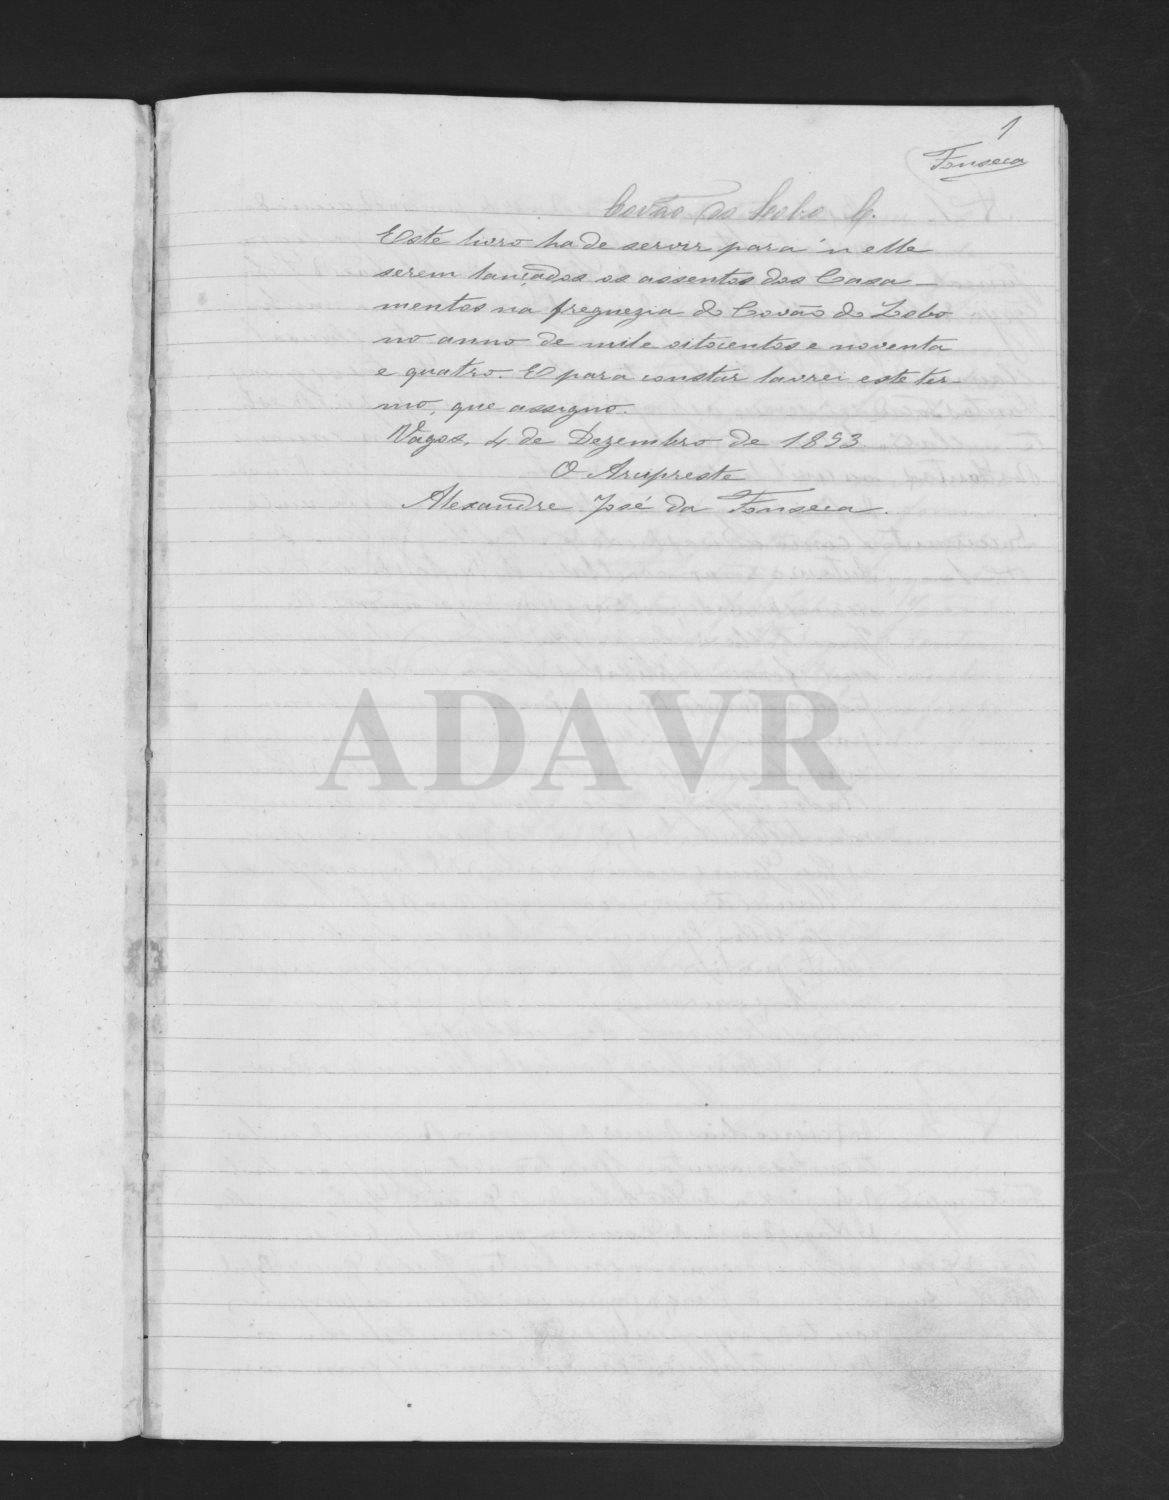 1
Fonseca
Covão do Lobo C.
Este livro ha de servir para n'elle
serem lançados os assentos dos Casa-
mentos na freguezia do Covão do Lobo
no anno de mil e oitocentos e noventa
e quatro. E para constar lavrei este ter-
mo, que assigno.
Vagos, 4 de Dezembro de 1893.
O Arcipreste
Alexandre José da Fonseca.
ADAVR